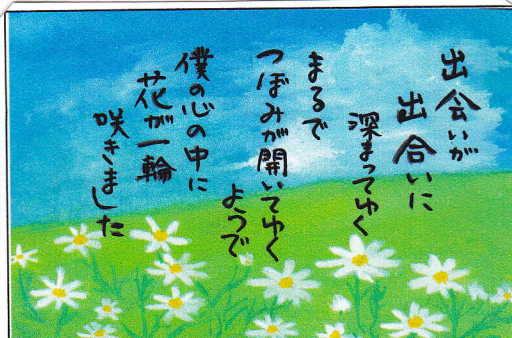 出会いが
出合いに
深まってゆく
まるで
つぼみが開いてゆく
ようで
僕の心の中に
花が一輪
咲きました